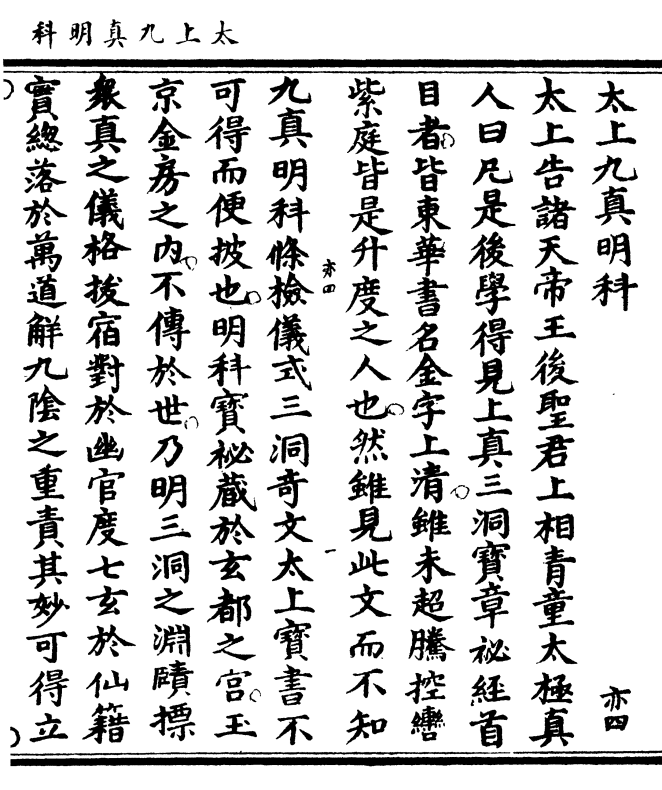 太上九真明科
太上九真明科
亦四
太上告諸天帝王後聖君上相青童太極真
人曰凡是後學得見上真三洞寶章祕經首
目者皆東華書名金字上清雖未超騰控轡
紫庭皆是升度之人也然雖見此文而不知
亦四
一
九真明科條檢儀式三洞奇文太上寶書不
可得而便披也明科寶祕蔵於玄都之宮玉
京金房之内不傳於世乃明三洞之淵賾摽
衆真之儀格拔宿對於幽官度七玄於仙籍
實總落於萬道解九陰之重責其妙可得立